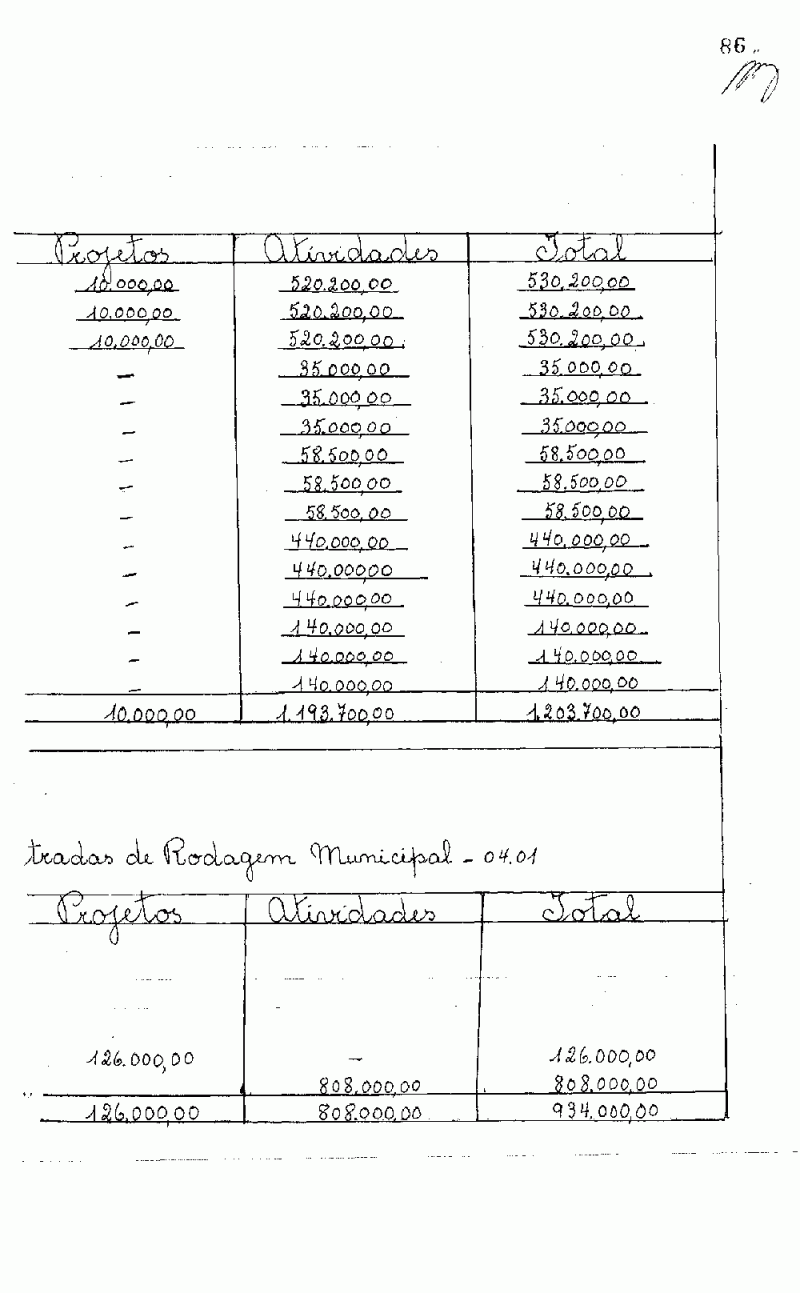 86
Projetos Atividades Total
10.000,00 520.200,00 530.200,00
10.000,00 520.200,00 530.200,00
10.000,00 520.200,00 530.200,00
– 35.000,00 35.000,00
– 35.000,00 35.000,00
– 35.000,00 35.000,00
– 58.500,00 58.500,00
– 58.500,00 58.500,00
– 58.500,00 58.500,00
– 440.000,00 440.000,00
– 440.000,00 440.000,00
– 440.000,00 440.000,00
– 140.000,00 140.000,00
– 140.000,00 140.000,00
– 140.000,00 140.000,00
10.000,00 1.193.700,00 1.203.700,00
tradas de Rodagem Municipal - 04.01
Projetos Atividades Total
126.000,00 – 126.000,00
808.000,00 808.000,00
126.000,00 808.000,00 934.000,00